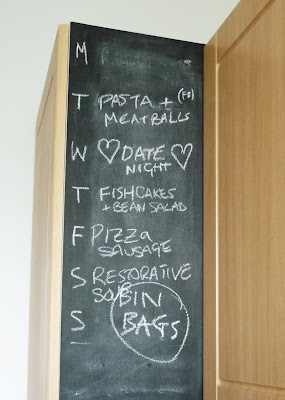 M
T PASTA + (FS)
MEATBALLS
W ♡ DATE ♡
NIGHT
T FISHCAKES
+ BEAN SALAD
F PIZZA
SAUSAGE
S RESTORATIVE
BIN
S BAGS